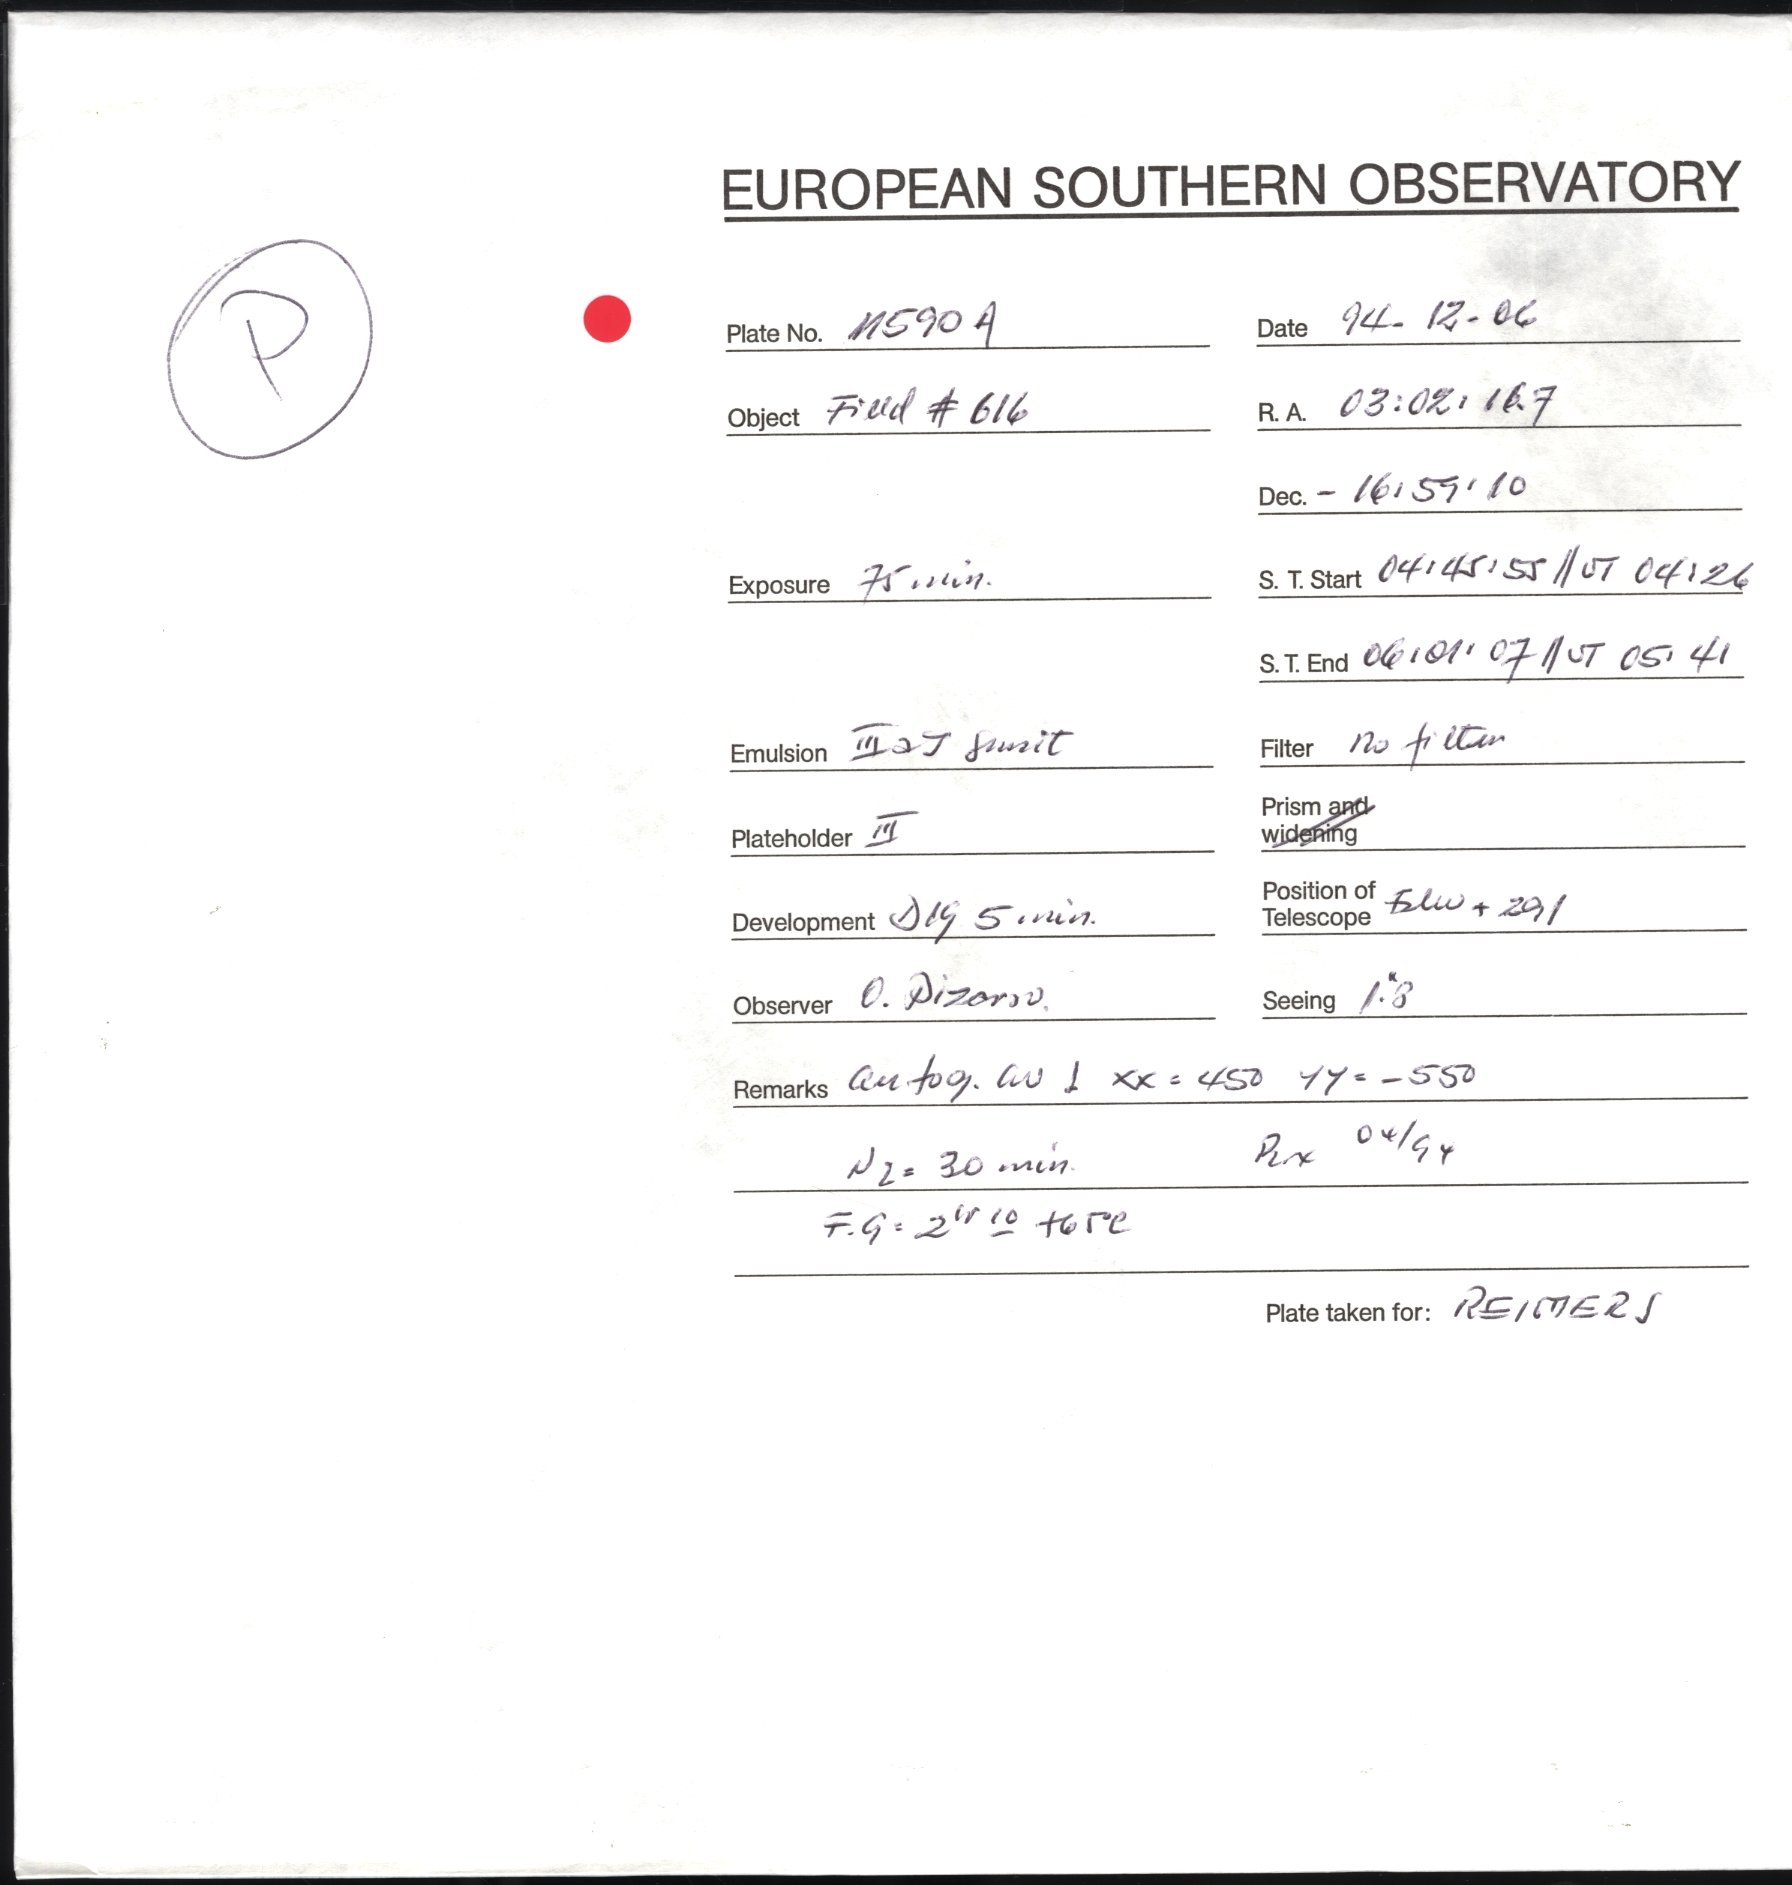 EUROPEAN SOUTHERN OBSERVATORY
P
Plate No. 11590 A
Date 94-12-06
Object Field # 616
R. A. 03:02:16.7
Dec. - 16:59:10
Exposure 75 min.
S. T. Start 04:45:55 // UT 04:26
S. T. End 06:01:07 // UT 05:41
Emulsion III a J
Filter no filter
Plateholder III
Prism and widening
Development D19 5 min.
Position of Telescope + 291
Observer O. Pizarro.
Seeing 1".8
Remarks autog. xx = 450 yy = -550
N2 = 30 min. 04/94
F.G = 10 +65°C
Plate taken for: REIMERS